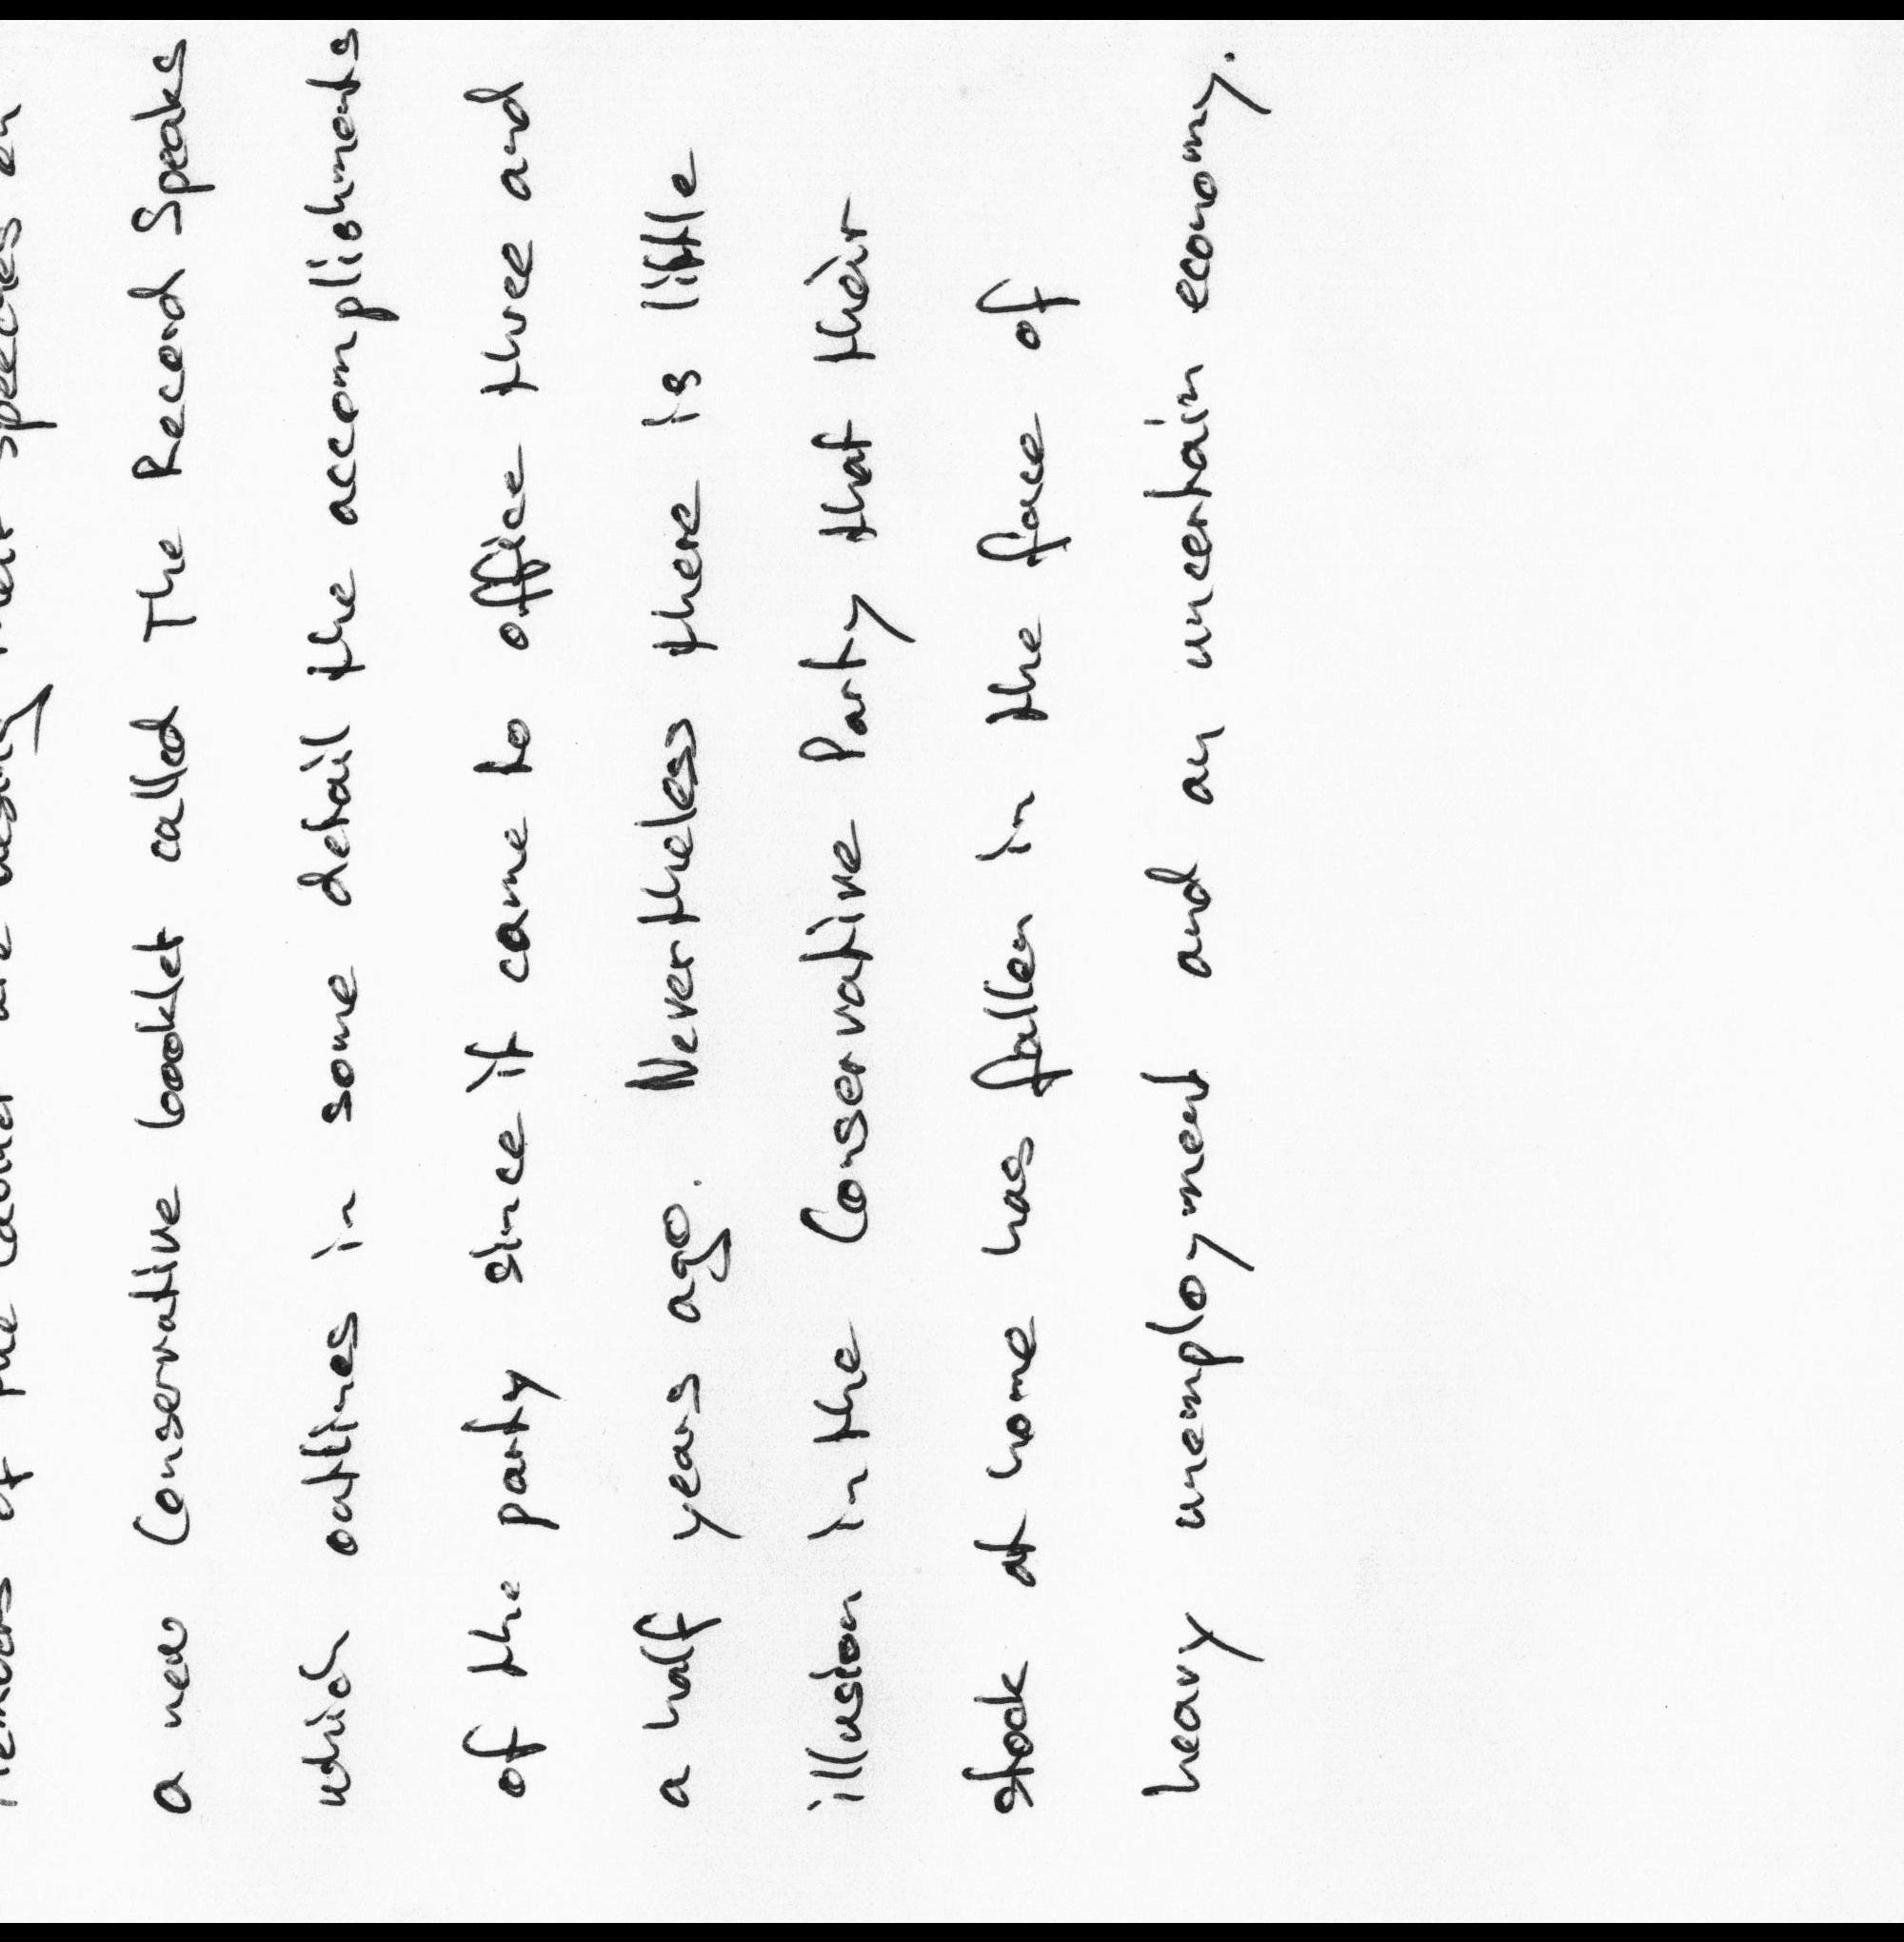 of the Cabinet are basing their speeches on
a new Conservative booklet called The Record Speaks
which outlines in some detail the accomplishments
of the party since it came to office three and
a half years ago. Nevertheless there is little
illusion in the Conservative Party that their
stock at home has fallen in the face of
heavy unemployment and an uncertain economy.